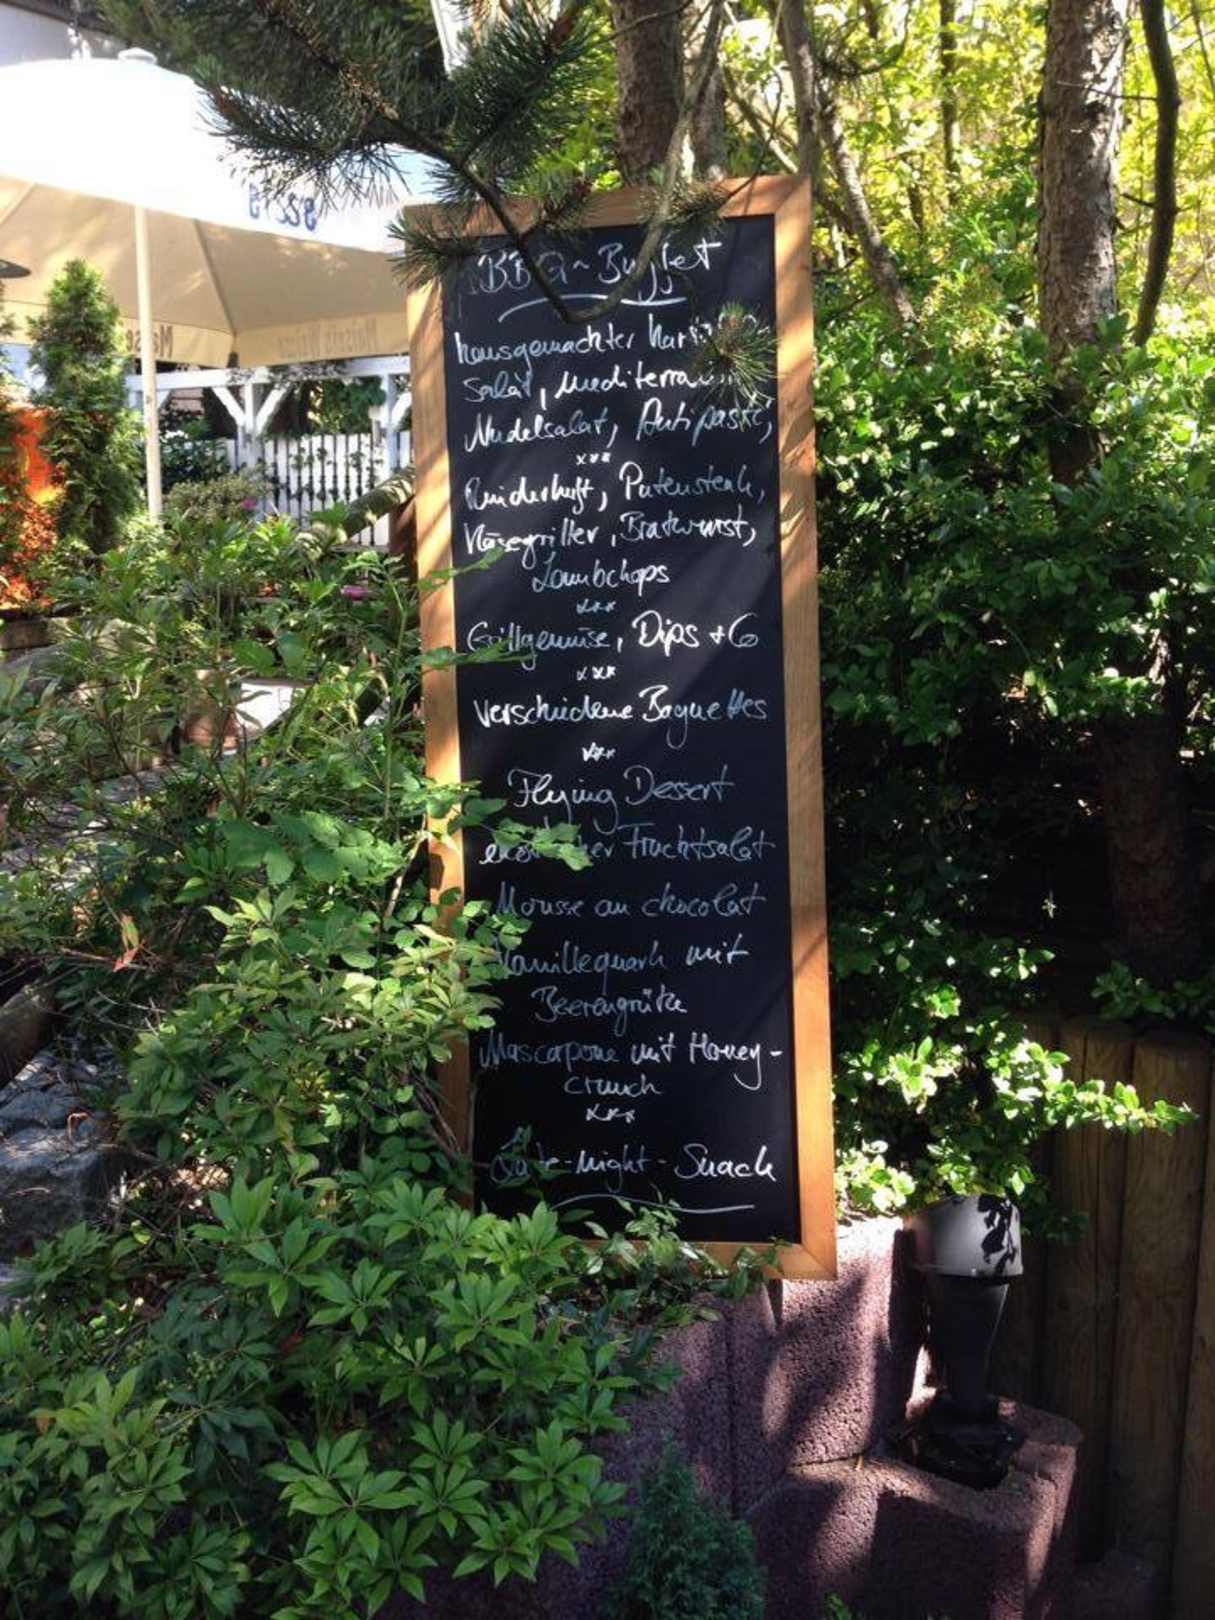 BBQ~Buffet
hausgemachter
Salat, mediterraner
Nudelsalat, Antipasti,
xxx
Rinderhuft, Putensteak,
Käsegriller, Bratwurst,
Lambchops
xxx
Grillgemüse, Dips + Co
xxx
verschiedene Baguettes
xxx
Flying Dessert
exotischer Fruchtsalat
Mousse au chocolat
Vanillequark mit
Beerengrütze
Mascarpone mit Honey-
crunch
xxx
Late-Night-Snack